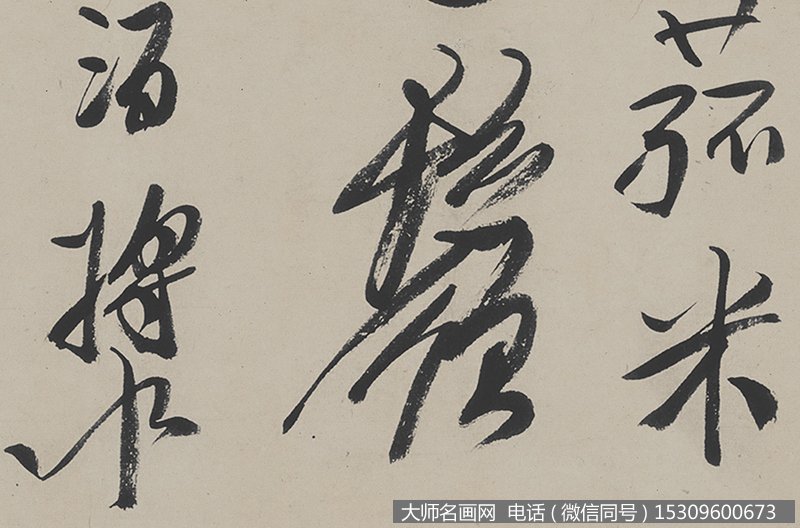 菰米
酒漿
大师名画网 电话（微信同号）15309600673